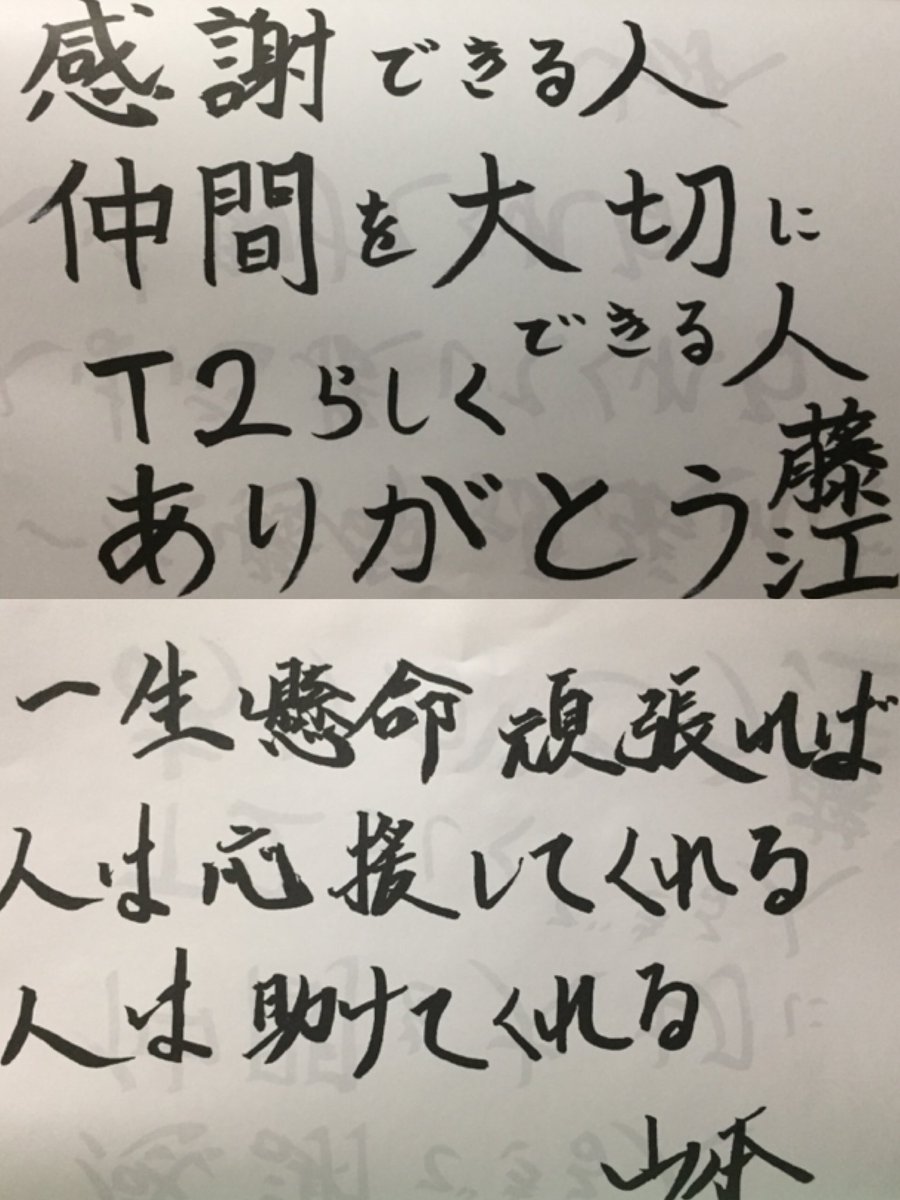 感謝できる人
仲間を大切に
できる人
T2らしく
ありがとう
藤江
一生懸命頑張れば
人は応援してくれる
人は助けてくれる
山本